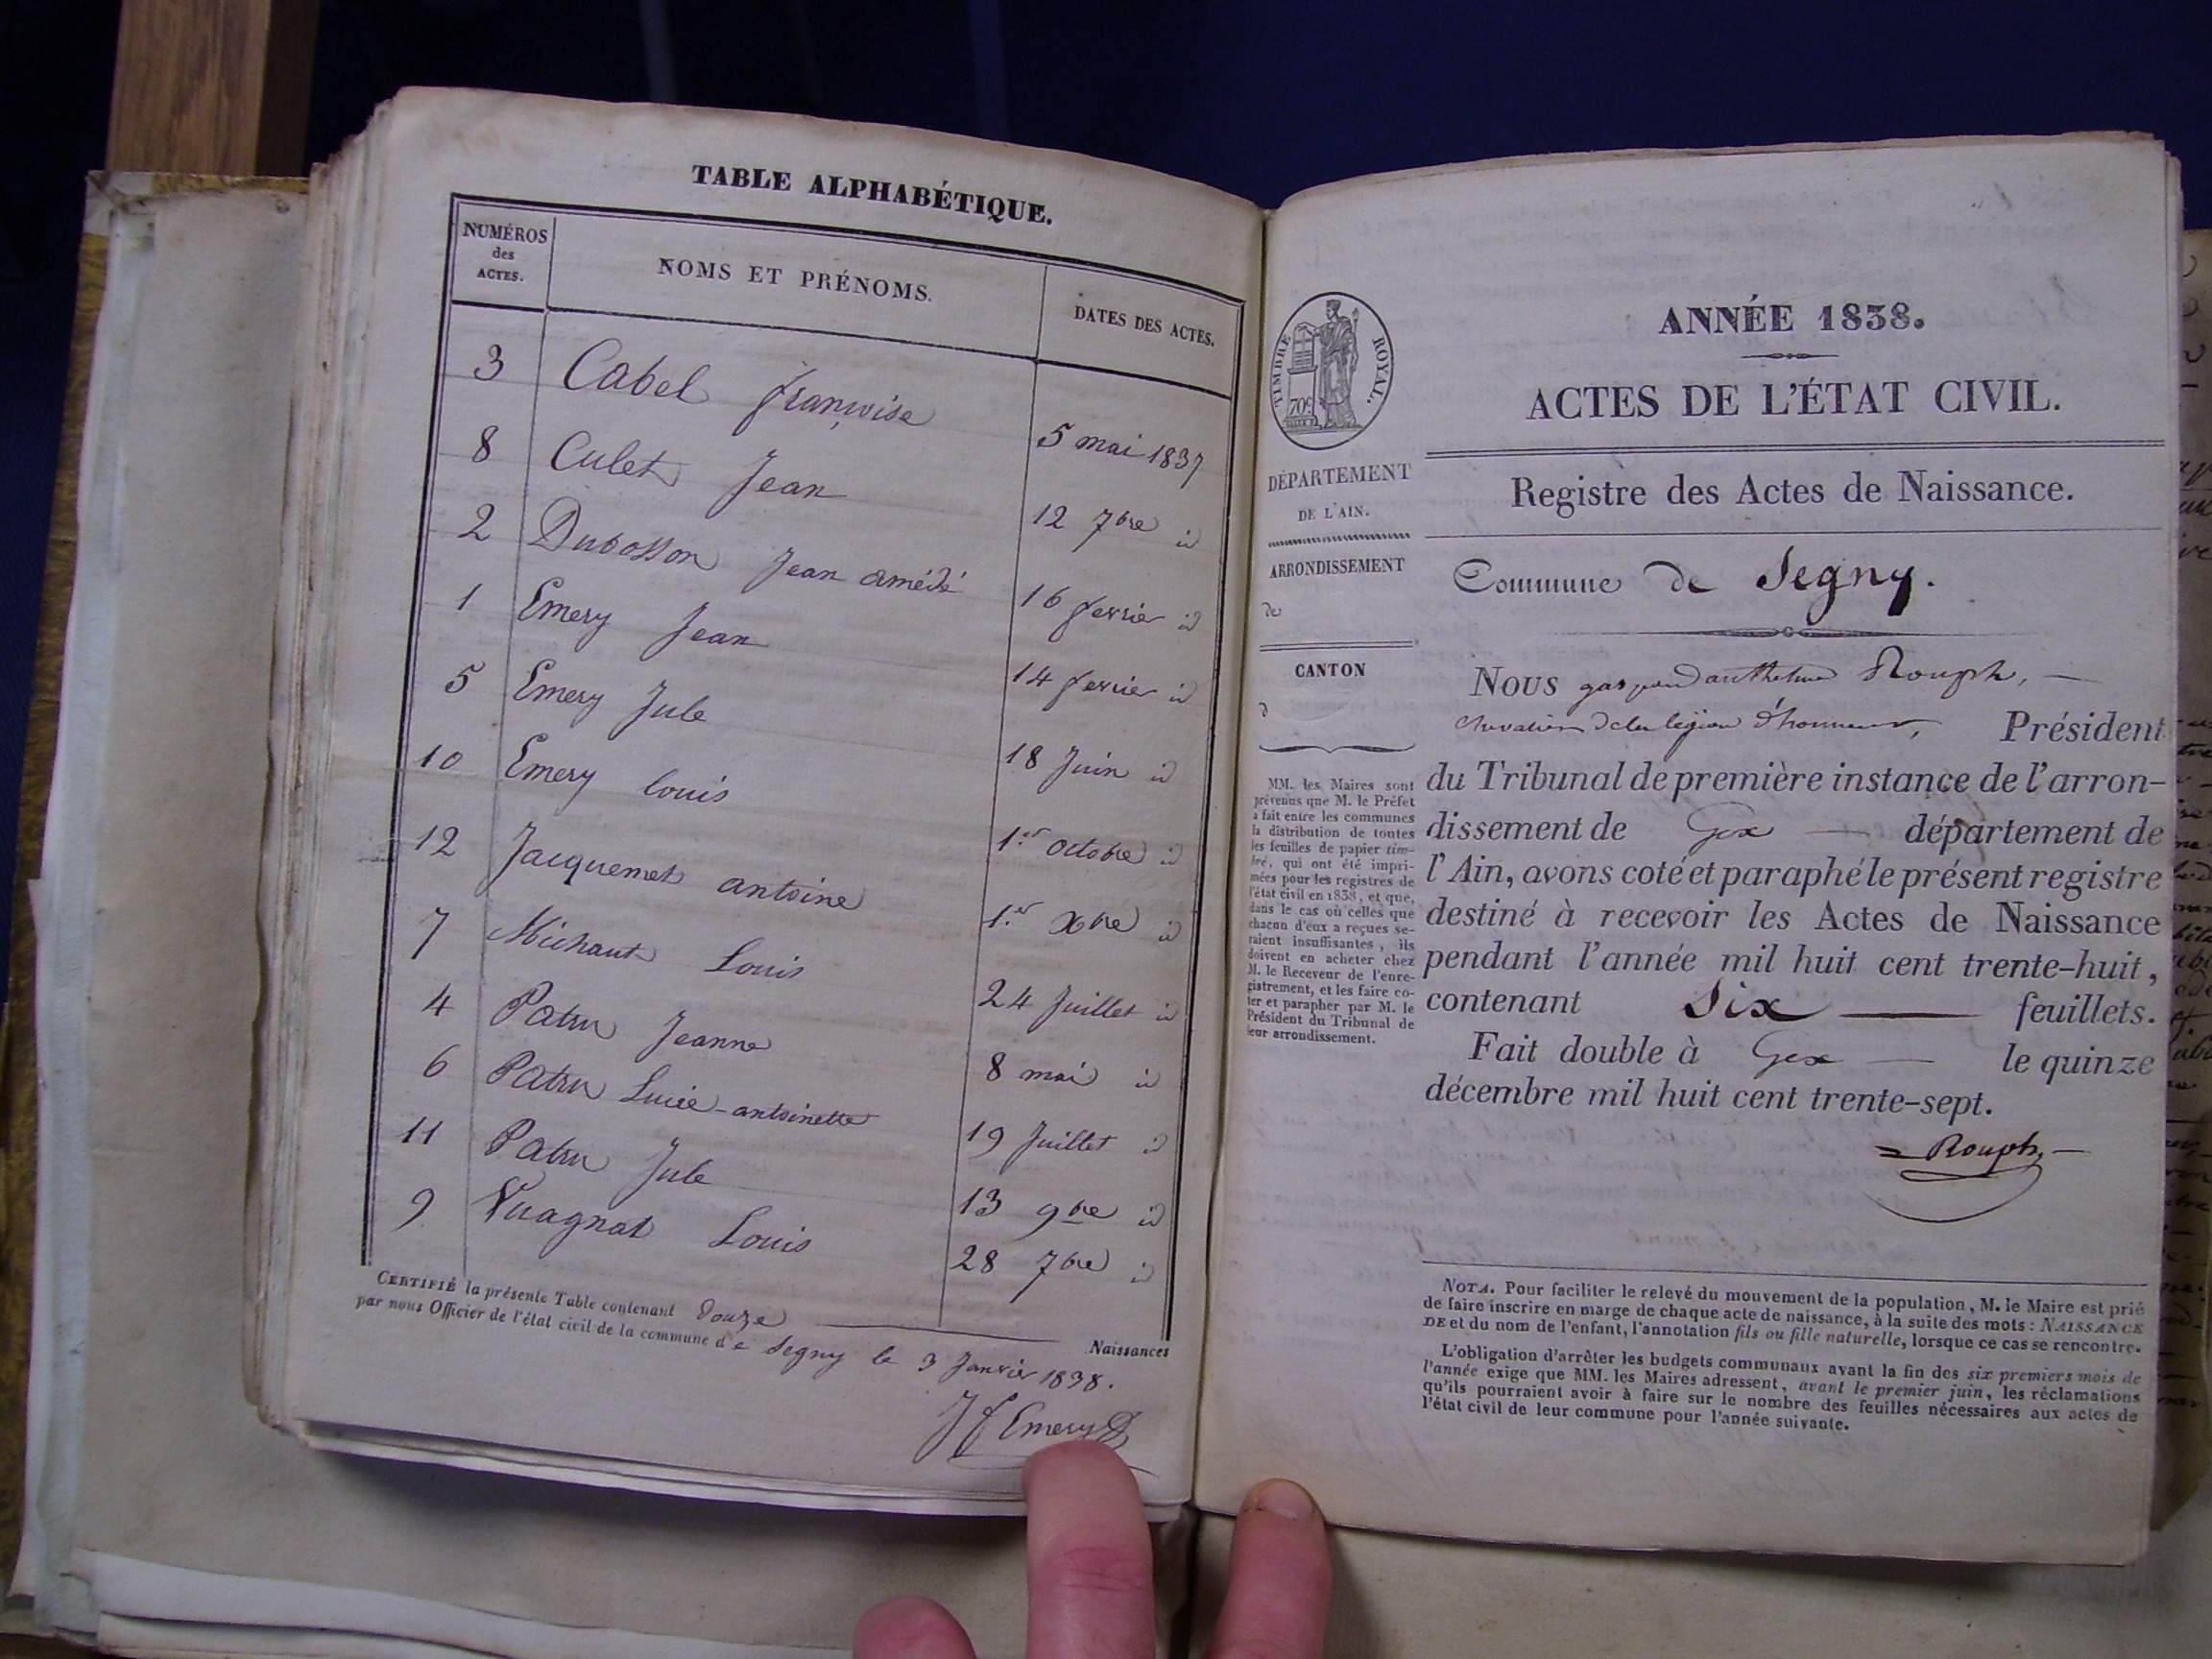 TABLE ALPHABÉTIQUE.
NUMÉROS des ACTES. NOMS ET PRÉNOMS. DATES DES ACTES.
3 Cabel françoise 5 mai 1837
8 Culet Jean 12 7bre id
2 Dubosson Jean amédé 16 fevrier id
1 Emery Jean 14 fevrier id
5 Emery Jule 18 Juin id
10 Emery Louis 1er octobre id
12 Jacquemet antoine 1er Xbre id
7 Michaut Louis 24 Juillet id
4 Patru Jeanne 8 mai id
6 Patru Lucie-antoinette 19 Juillet id
11 Patru Jule 13 9bre id
9 Vuagnat Louis 28 7bre id
CERTIFIÉ la présente Table contenant douze Naissances
par nous Officier de l'état civil de la commune de Segny le 3 Janvier 1838.
J f Emery
TIMBRE ROYAL.
70c
DÉPARTEMENT
DE L'AIN.
ARRONDISSEMENT
de
CANTON
d
MM. les Maires sont
prévenus que M. le Préfet
a fait entre les communes
la distribution de toutes
les feuilles de papier tim-
bré, qui ont été impri-
mées pour les registres de
l'état civil en 1838, et que,
dans le cas où celles que
chacun d'eux a reçues se-
raient insuffisantes, ils
doivent en acheter chez
M. le Receveur de l'enre-
gistrement, et les faire co-
ter et parapher par M. le
Président du Tribunal de
leur arrondissement.
ANNÉE 1838.
ACTES DE L'ÉTAT CIVIL.
Registre des Actes de Naissance.
Commune de Segny.
NOUS gaspard anthelme Rouph,
chevalier de la légion d'honneur, Président
du Tribunal de première instance de l'arron-
dissement de Gex département de
l'Ain, avons coté et paraphé le présent registre
destiné à recevoir les Actes de Naissance
pendant l'année mil huit cent trente-huit,
contenant Six feuillets.
Fait double à Gex le quinze
décembre mil huit cent trente-sept.
Rouph
NOTA. Pour faciliter le relevé du mouvement de la population, M. le Maire est prié
de faire inscrire en marge de chaque acte de naissance, à la suite des mots: NAISSANCE
DE et du nom de l'enfant, l'annotation fils ou fille naturelle, lorsque ce cas se rencontre.
L'obligation d'arrêter les budgets communaux avant la fin des six premiers mois de
l'année exige que MM. les Maires adressent, avant le premier juin, les réclamations
qu'ils pourraient avoir à faire sur le nombre des feuilles nécessaires aux actes de
l'état civil de leur commune pour l'année suivante.